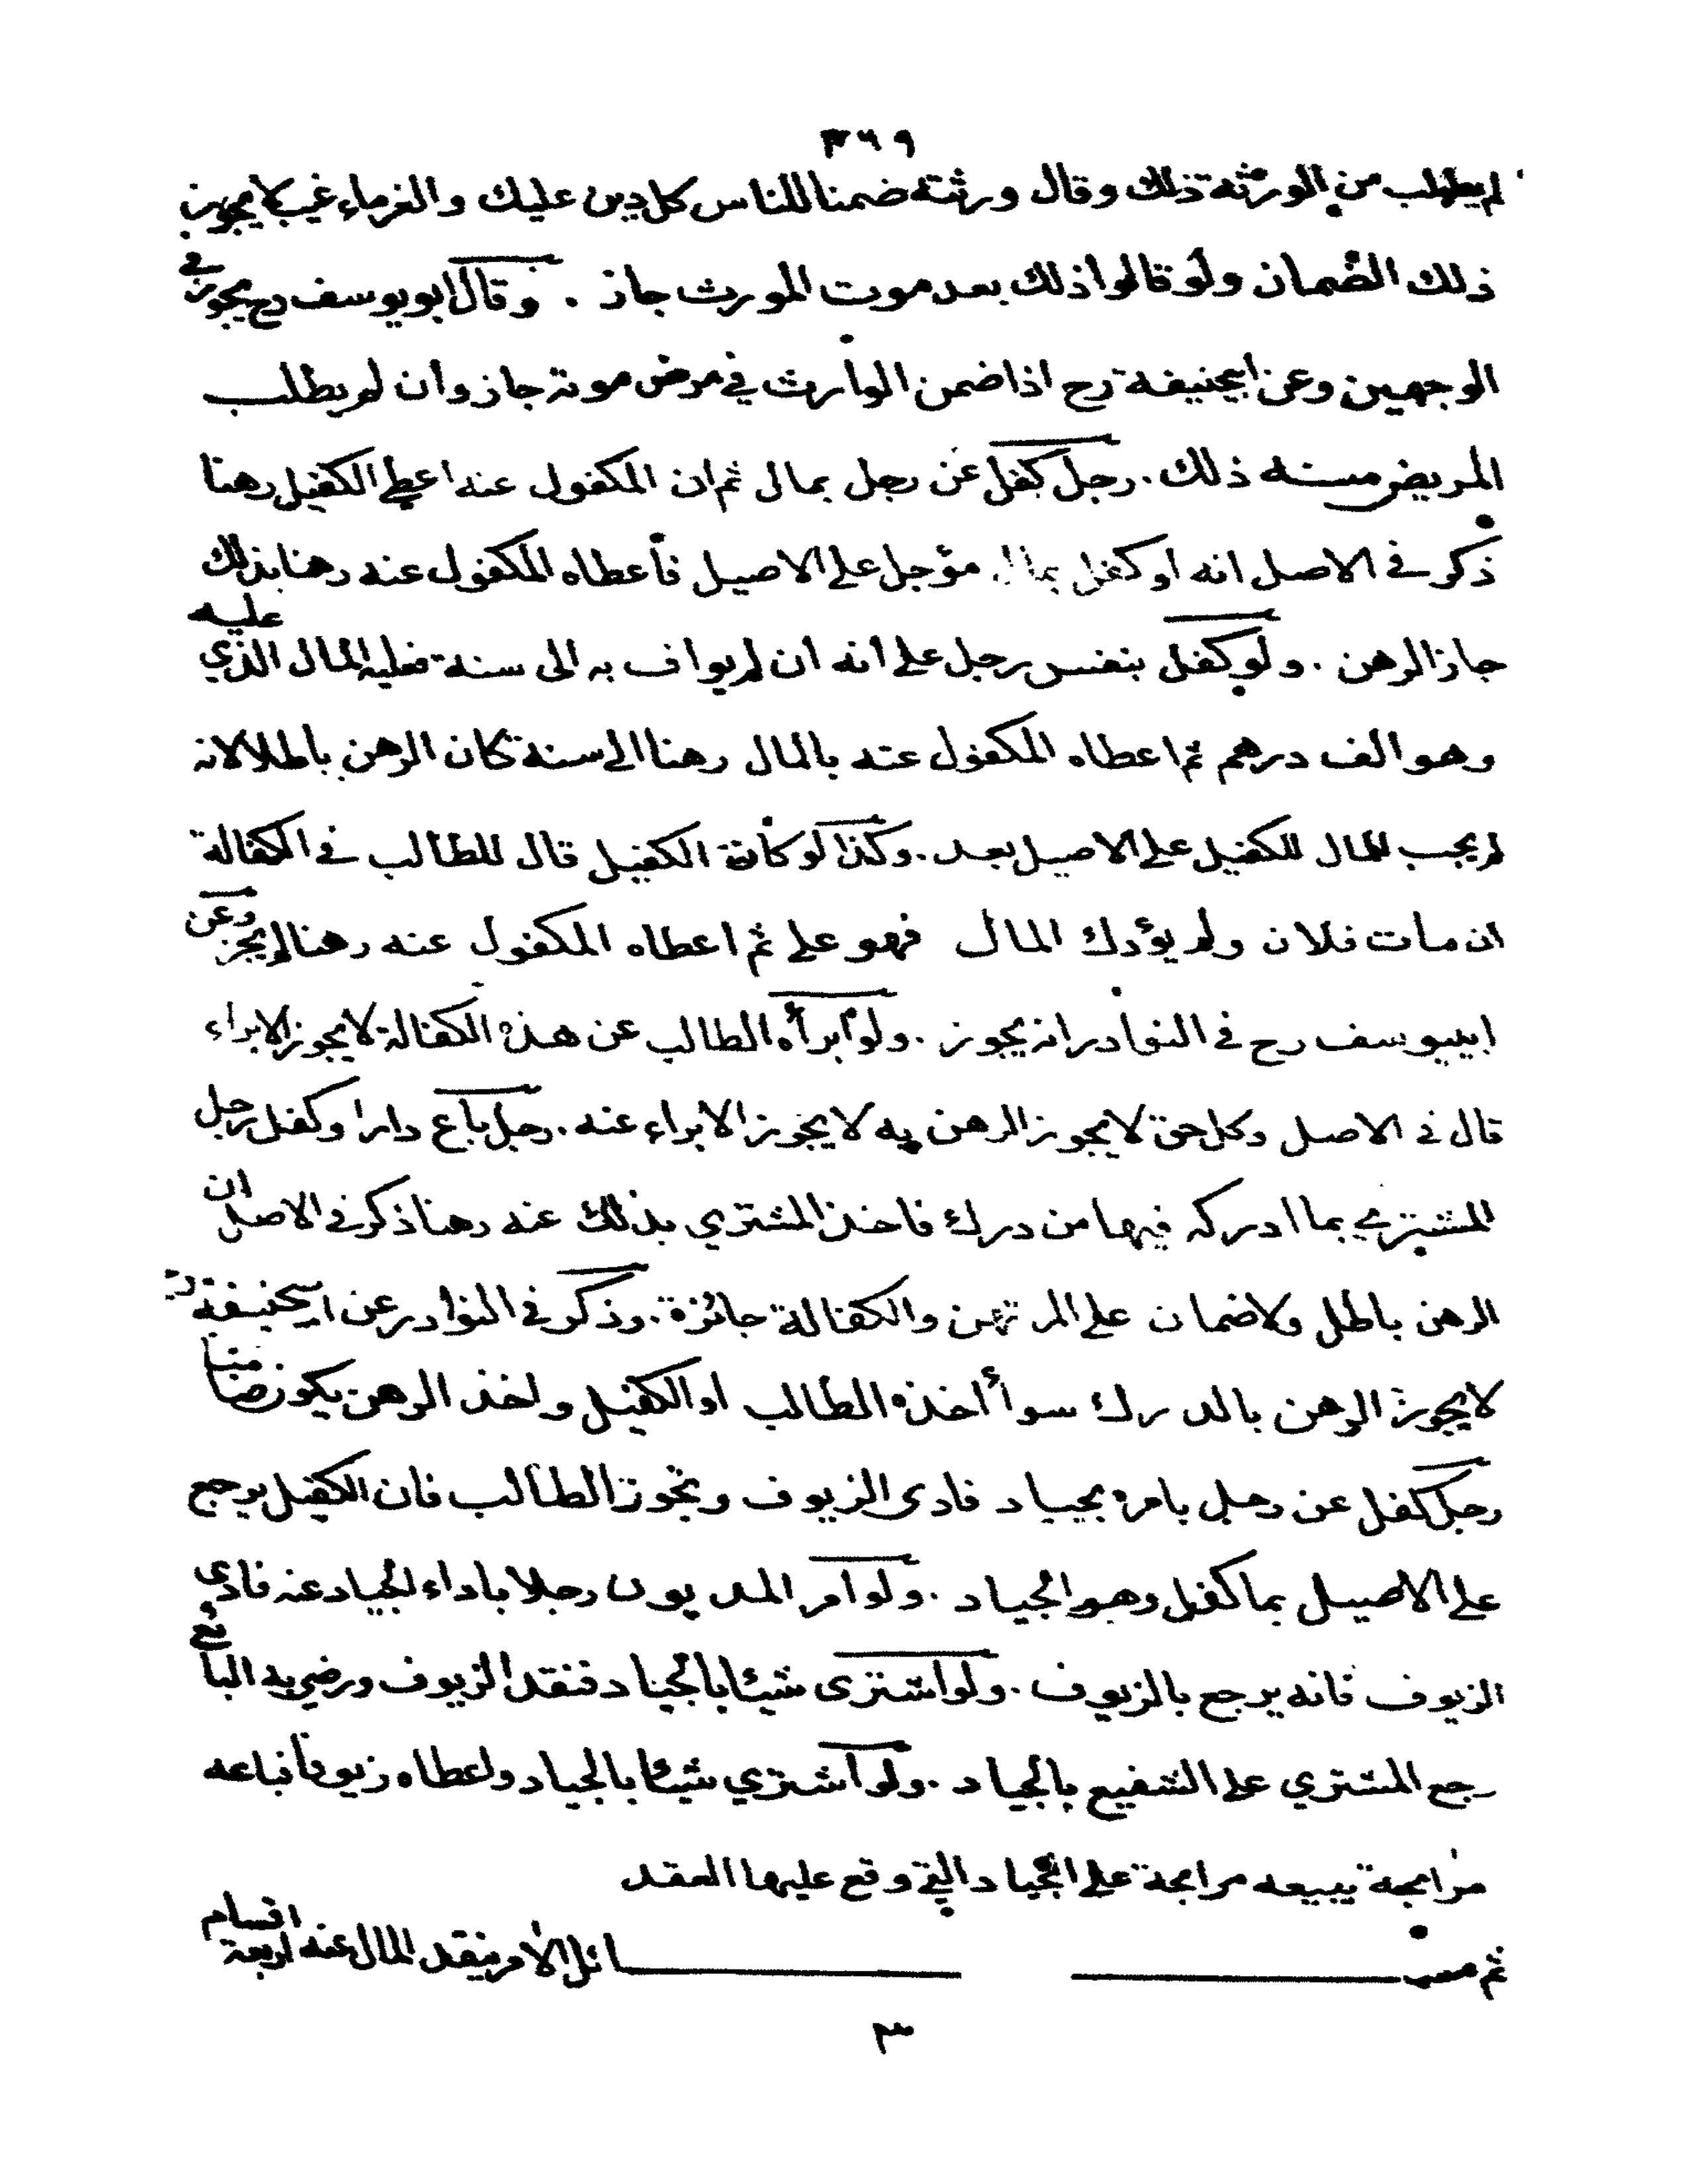 ٣٦٩
لم يطلب من الورثة ذلك وقال ورثته ضمنا للناس كل دين عليك والغرماء غيب لا يجوز
ذلك الضمان ولو قالوا ذلك بعد موت المورث جاز . وقال ابو يوسف رح يجوز في
الوجهين وعن ابيحنيفة رح اذا ضمن الوارث في مرض موته جاز وان لم يطلب
المريض منه ذلك . رجل كفل عن رجل بمال ثم ان المكفول عنه اعطى الكفيل رهنا
ذكر في الاصل انه لو كفل بمال مؤجل على الاصيل فأعطاه المكفول عنه رهنا بذلك
جاز الرهن . ولو كفل بنفس رجل على انه ان لم يواف به الى سنة فعليه المال الذي عليه
وهو الف درهم ثم اعطاه المكفول عنه بالمال رهنا الى سنة كان الرهن باطلا لانه
لم يجب المال للكفيل على الاصيل بعد . وكذا لو كان الكفيل قال للطالب في الكفالة
ان مات فلان ولم يؤدك المال فهو علي ثم اعطاه المكفول عنه رهنا لم يجز وعن
ابييوسف رح في النوادر انه يجوز . ولو أبرأه الطالب عن هذه الكفالة لا يجوز الابراء
قال في الاصل وكل حق لا يجوز الرهن به لا يجوز الابراء عنه . رجل باع دارا وكفل رجل
المشتري بما ادركه فيها من درك فاخذ المشتري بذلك عنه رهنا ذكر في الاصل ان
الرهن باطل ولا ضمان على المرتهن والكفالة جائزة . وذكر في النوادر عن ابيحنيفة رح
لا يجوز الرهن بالدرك سوأ أخذه الطالب او الكفيل واخذ الرهن يكون ضامنا
رجل كفل عن رجل بامره بجياد فادى الزيوف وتجوز الطالب فان الكفيل يرجع
على الاصيل بما كفل وهو الجياد . ولو امر المديون رجلا باداء الجياد عنه فادى
الزيوف فانه يرجع بالزيوف . ولو اشترى شيئا بالجياد فنقد الزيوف ورضي به البائع
رجع المشتري على الشفيع بالجياد . ولو اشتري شيئا بالجياد واعطاه زيوفا فباعه
مرابحة يبيعه مرابحة على الجياد التي وقع عليها العقد
ثم مسائل الامر بنقد المال عنه اربعة اقسام
٣